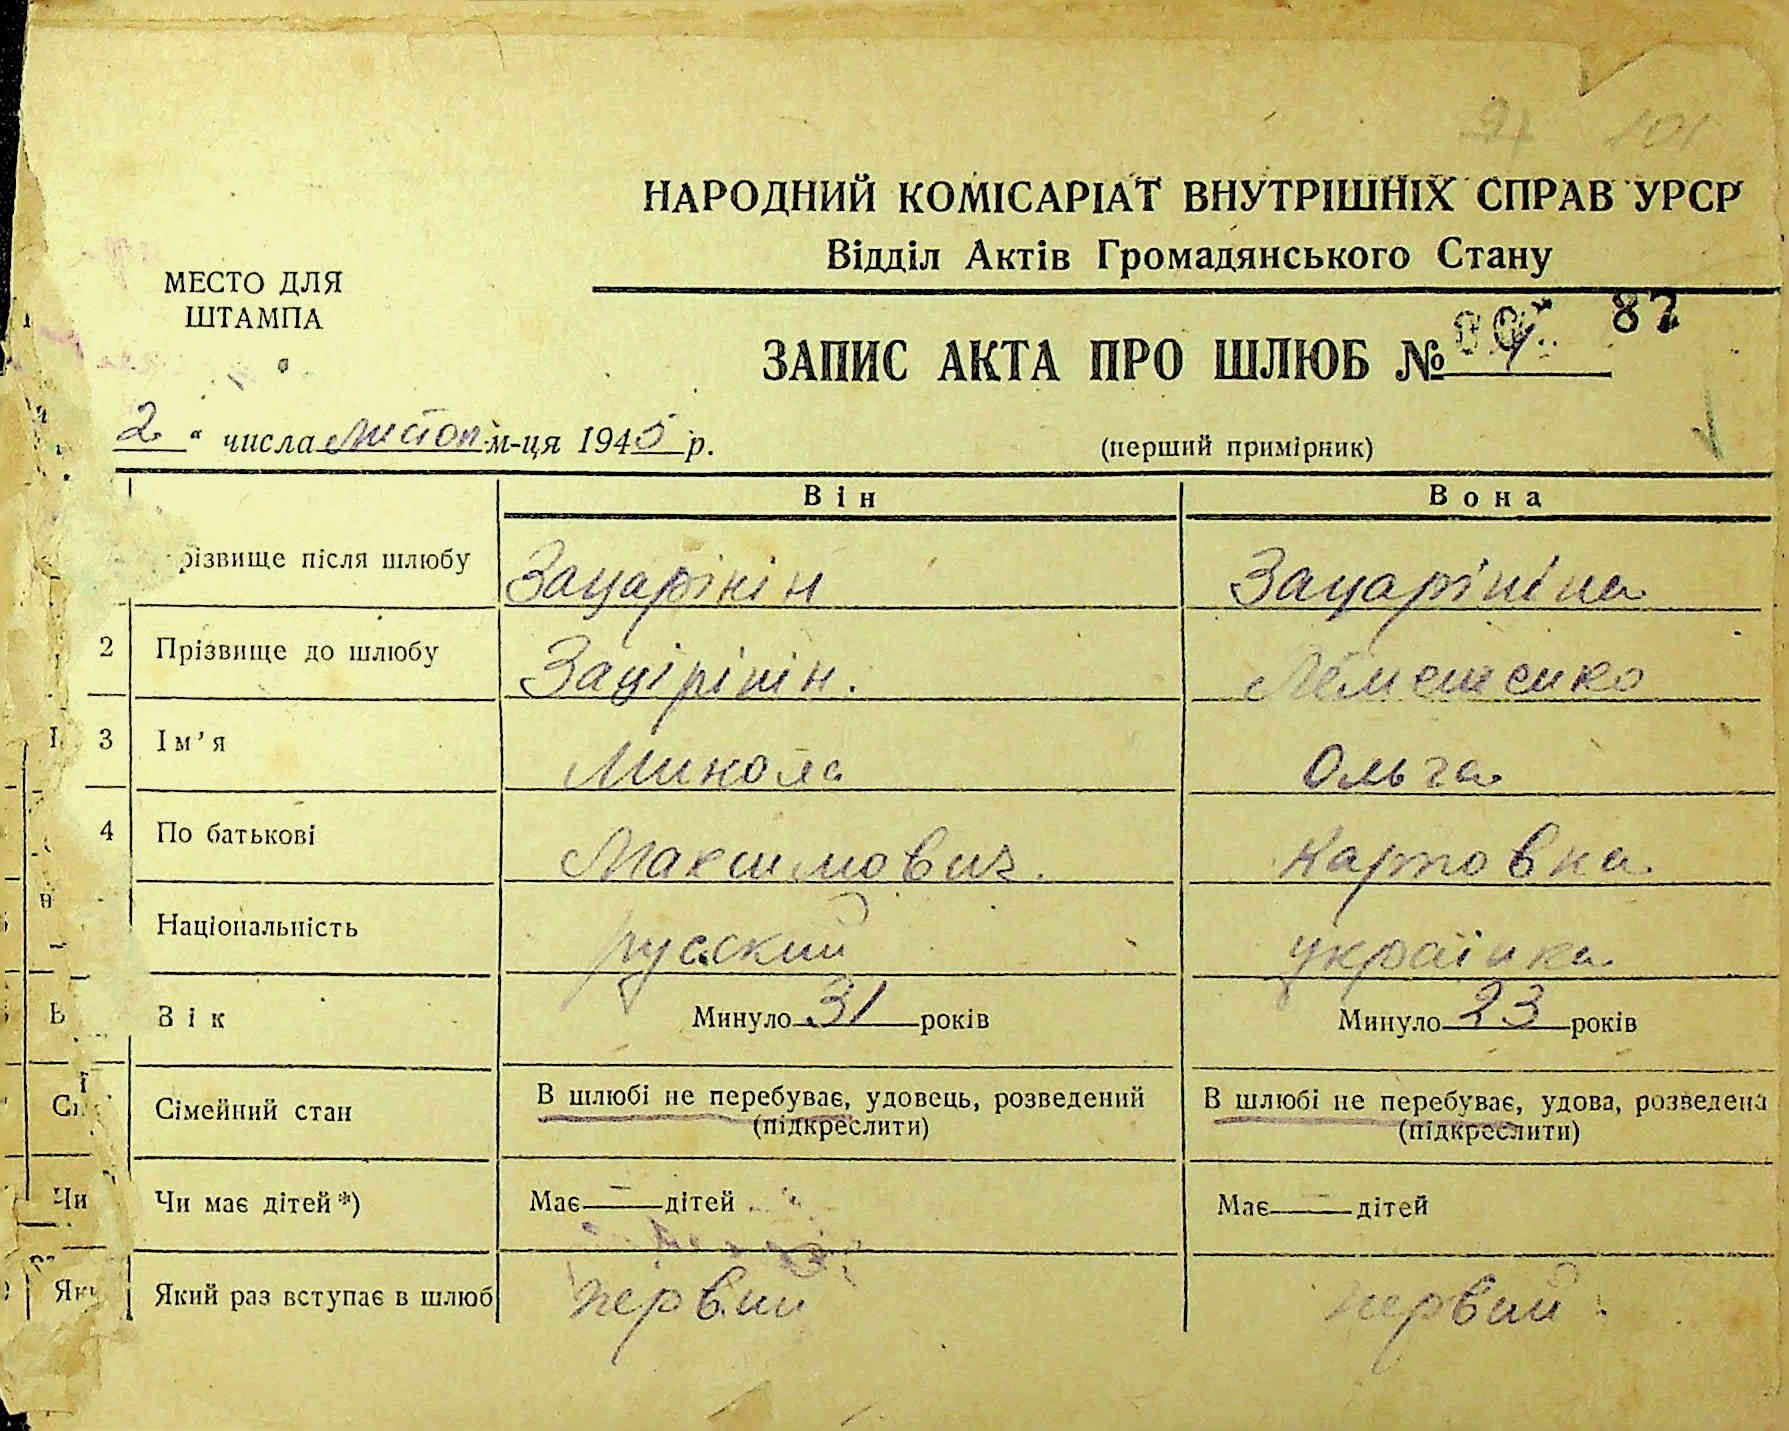 101
НАРОДНИЙ КОМІСАРІАТ ВНУТРІШНІХ СПРАВ УРСР
Відділ Актів Громадянського Стану
МЕСТО ДЛЯ
ШТАМПА
87
ЗАПИС АКТА ПРО ШЛЮБ №
2 " числа листоп м-ця 1945 р.
(перший примірник)
Він Вона
різвище після шлюбу Зацарінін Зацарініна
2 Прізвище до шлюбу Зацірінін. Лемешенко
3 Ім’я Микола Ольга
4 По батькові Максимович. Карповна
Національність русский українка
Вік Минуло 31 років Минуло 23 років
Сімейний стан В шлюбі не перебуває, удовець, розведений В шлюбі не перебуває, удова, розведена
(підкреслити) (підкреслити)
Чи має дітей *) Має — дітей Має — дітей
Який раз вступає в шлюб первий первий